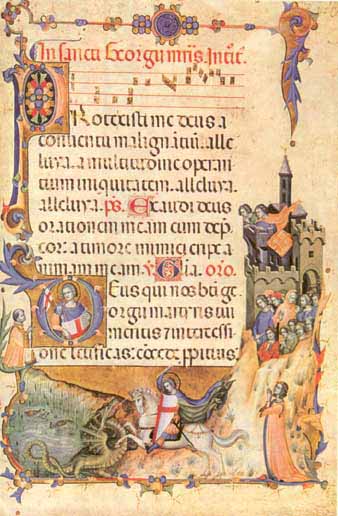 In sancti Georgii mris Introit.
Protexisti me deus a
conuentu malignātiū. alle
luya. a multitudine operan
tium iniquitatem. alleluya.
alleluya. ps. Exaudi deus
orationem meam cum dep
cor: a timore inimici eripe a
nimam meam. ℣. Glia. oro.
Deus qui nos bti ge
orgii martyris tui
meritis 7 intercessi
one letificas: concede ppitius.